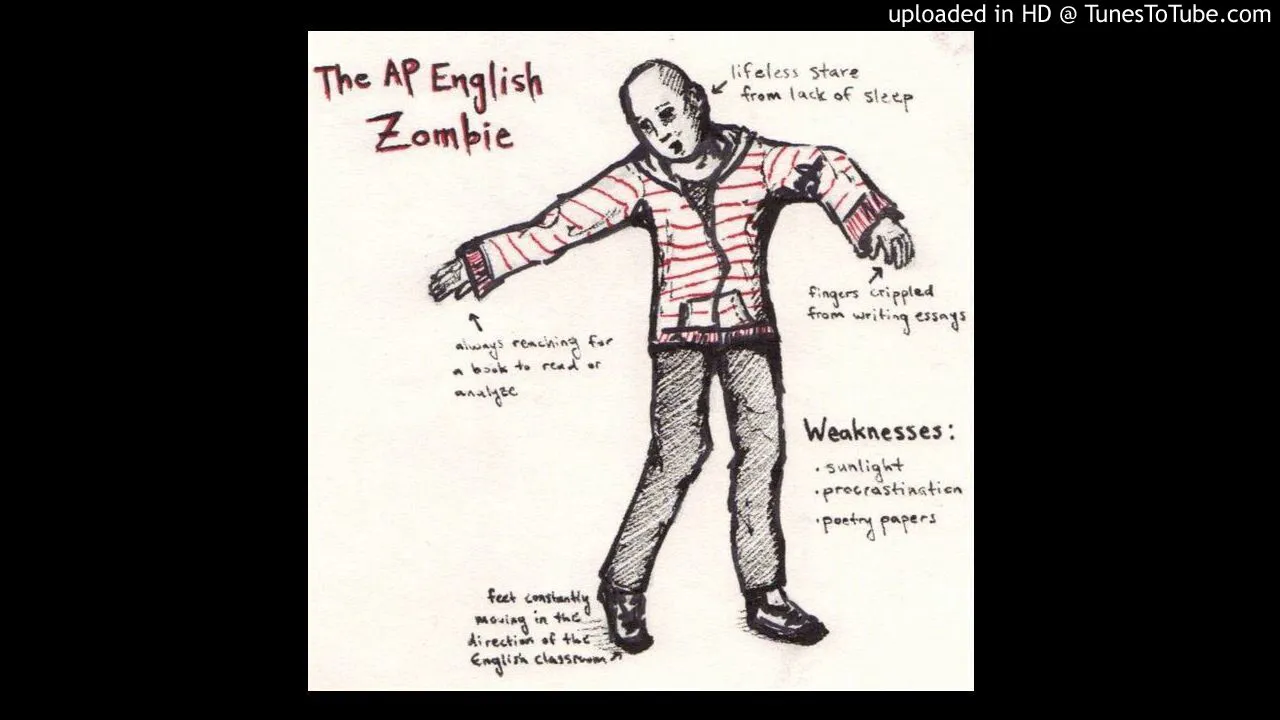 uploaded in HD @ TunesToTube.com
The AP English
Zombie
lifeless stare
from lack of sleep
fingers crippled
from writing essays
always reaching for
a book to read or
analyze
Weaknesses:
• sunlight
• procrastination
• poetry papers
feet constantly
moving in the
direction of the
English classroom